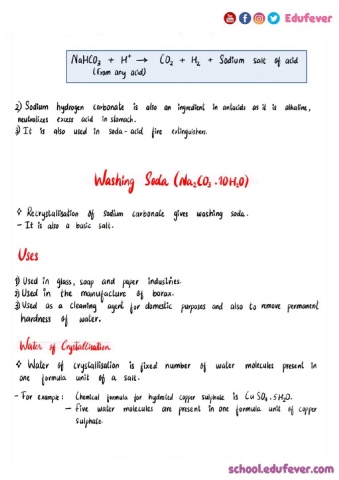 Edufever
NaHCO3 + H+ → CO2 + H2 + Sodium salt of acid
(from any acid)
2) Sodium hydrogen carbonate is also an ingredient in antacids as it is alkaline,
neutralizes excess acid in stomach.
3) It is also used in soda-acid fire extinguishers.
Washing Soda (Na2CO3.10H2O)
❖ Recrystallisation of sodium carbonate gives washing soda.
- It is also a basic salt.
Uses
1) Used in glass, soap and paper industries.
2) Used in the manufacture of borax.
3) Used as a cleaning agent for domestic purposes and also to remove permanent
hardness of water.
Water of Crystallisation
❖ Water of crystallisation is fixed number of water molecules present in
one formula unit of a salt.
- For example: Chemical formula for hydrated copper sulphate is CuSO4.5H2O.
- Five water molecules are present in one formula unit of copper
sulphate.
school.edufever.com